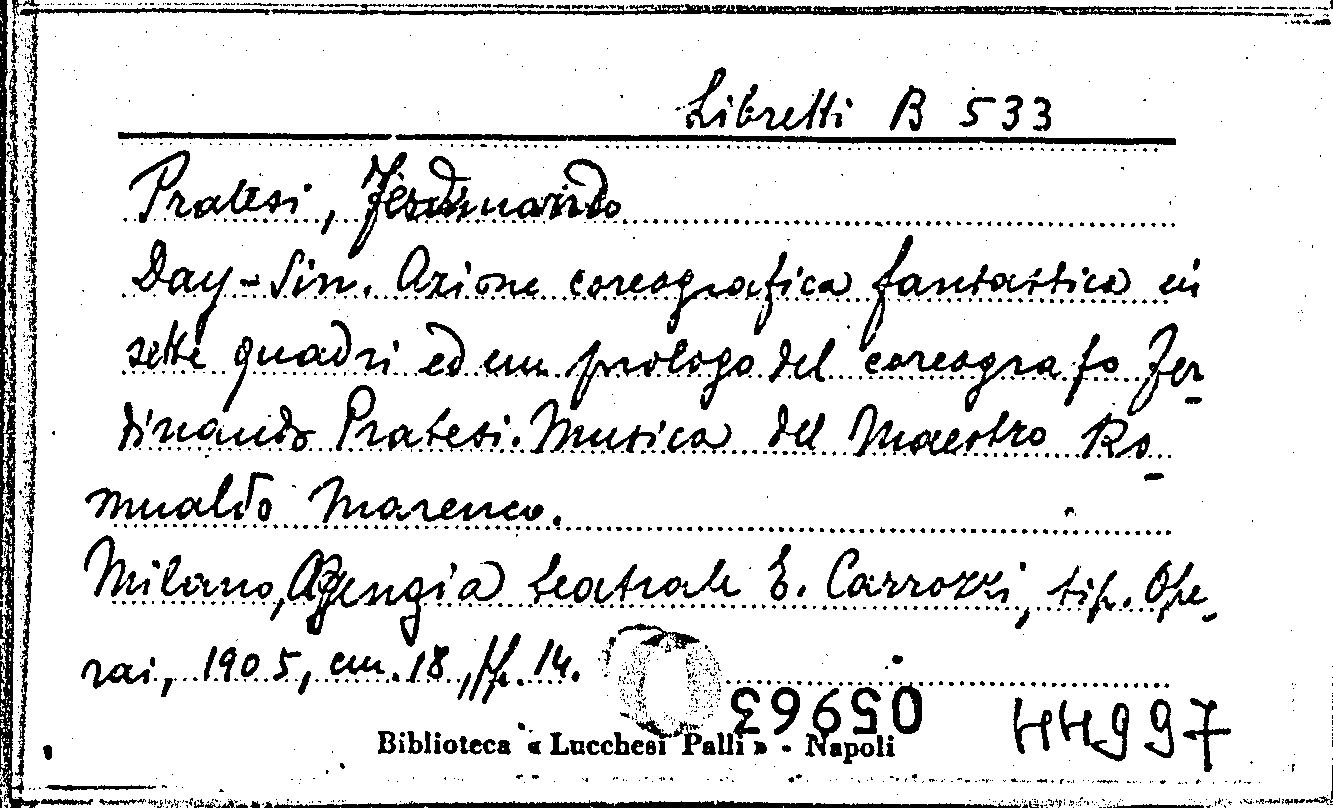 Libretti B 533
Pratesi, Ferdinando
Day-Sin. Azione coreografica fantastica in
sette quadri ed un prologo del coreografo Fer-
dinando Pratesi. Musica del Maestro Ro-
mualdo Marenco.
Milano, Agenzia teatrale E. Carrozzi, tip. Ope-
rai, 1905, cm. 18, pp. 14.
05963
44997
Biblioteca « Lucchesi Palli » - Napoli